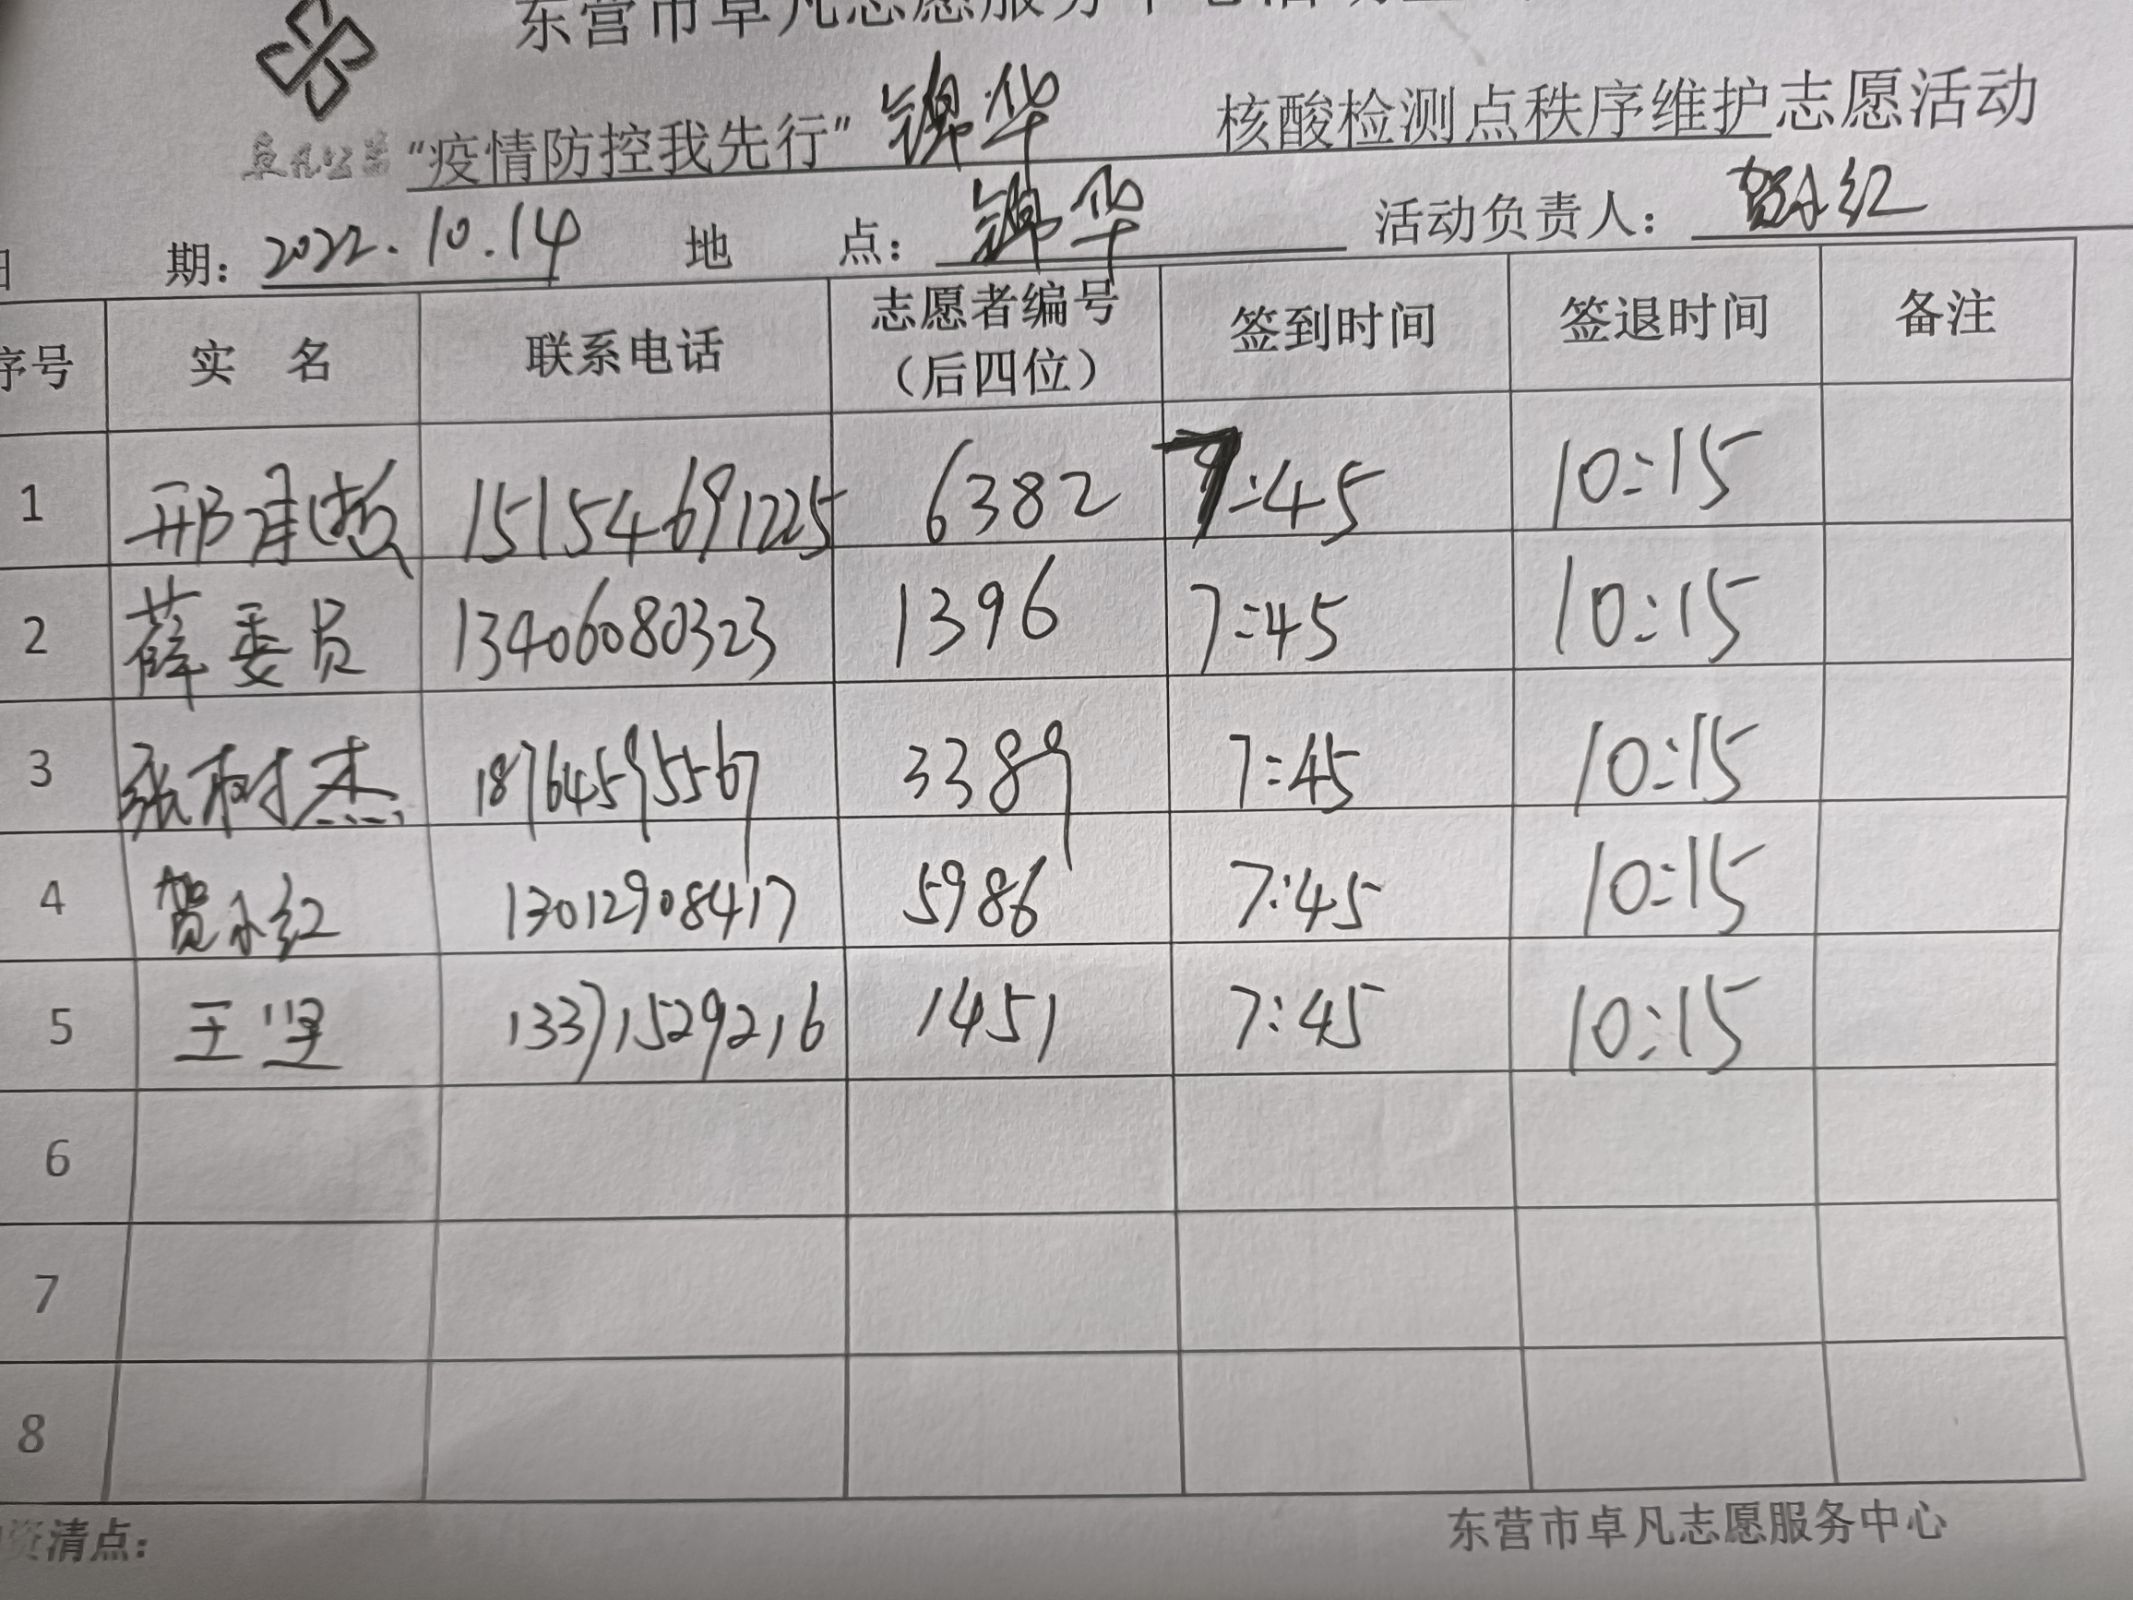 东营市卓凡志愿服务中心活动
卓凡公益
“疫情防控我先行” 锦华 核酸检测点秩序维护志愿活动
期: 2022.10.14 地 点: 锦华 活动负责人: 贺永红
序号 实 名 联系电话 志愿者编号（后四位） 签到时间 签退时间 备注
1 邢 15154691225 6382 7:45 10:15
2 薛委员 13406080323 1396 7:45 10:15
3 张树杰 18764595567 3389 7:45 10:15
4 贺永红 13012908417 5986 7:45 10:15
5 王坚 13371529216 1451 7:45 10:15
6
7
8
资清点:
东营市卓凡志愿服务中心